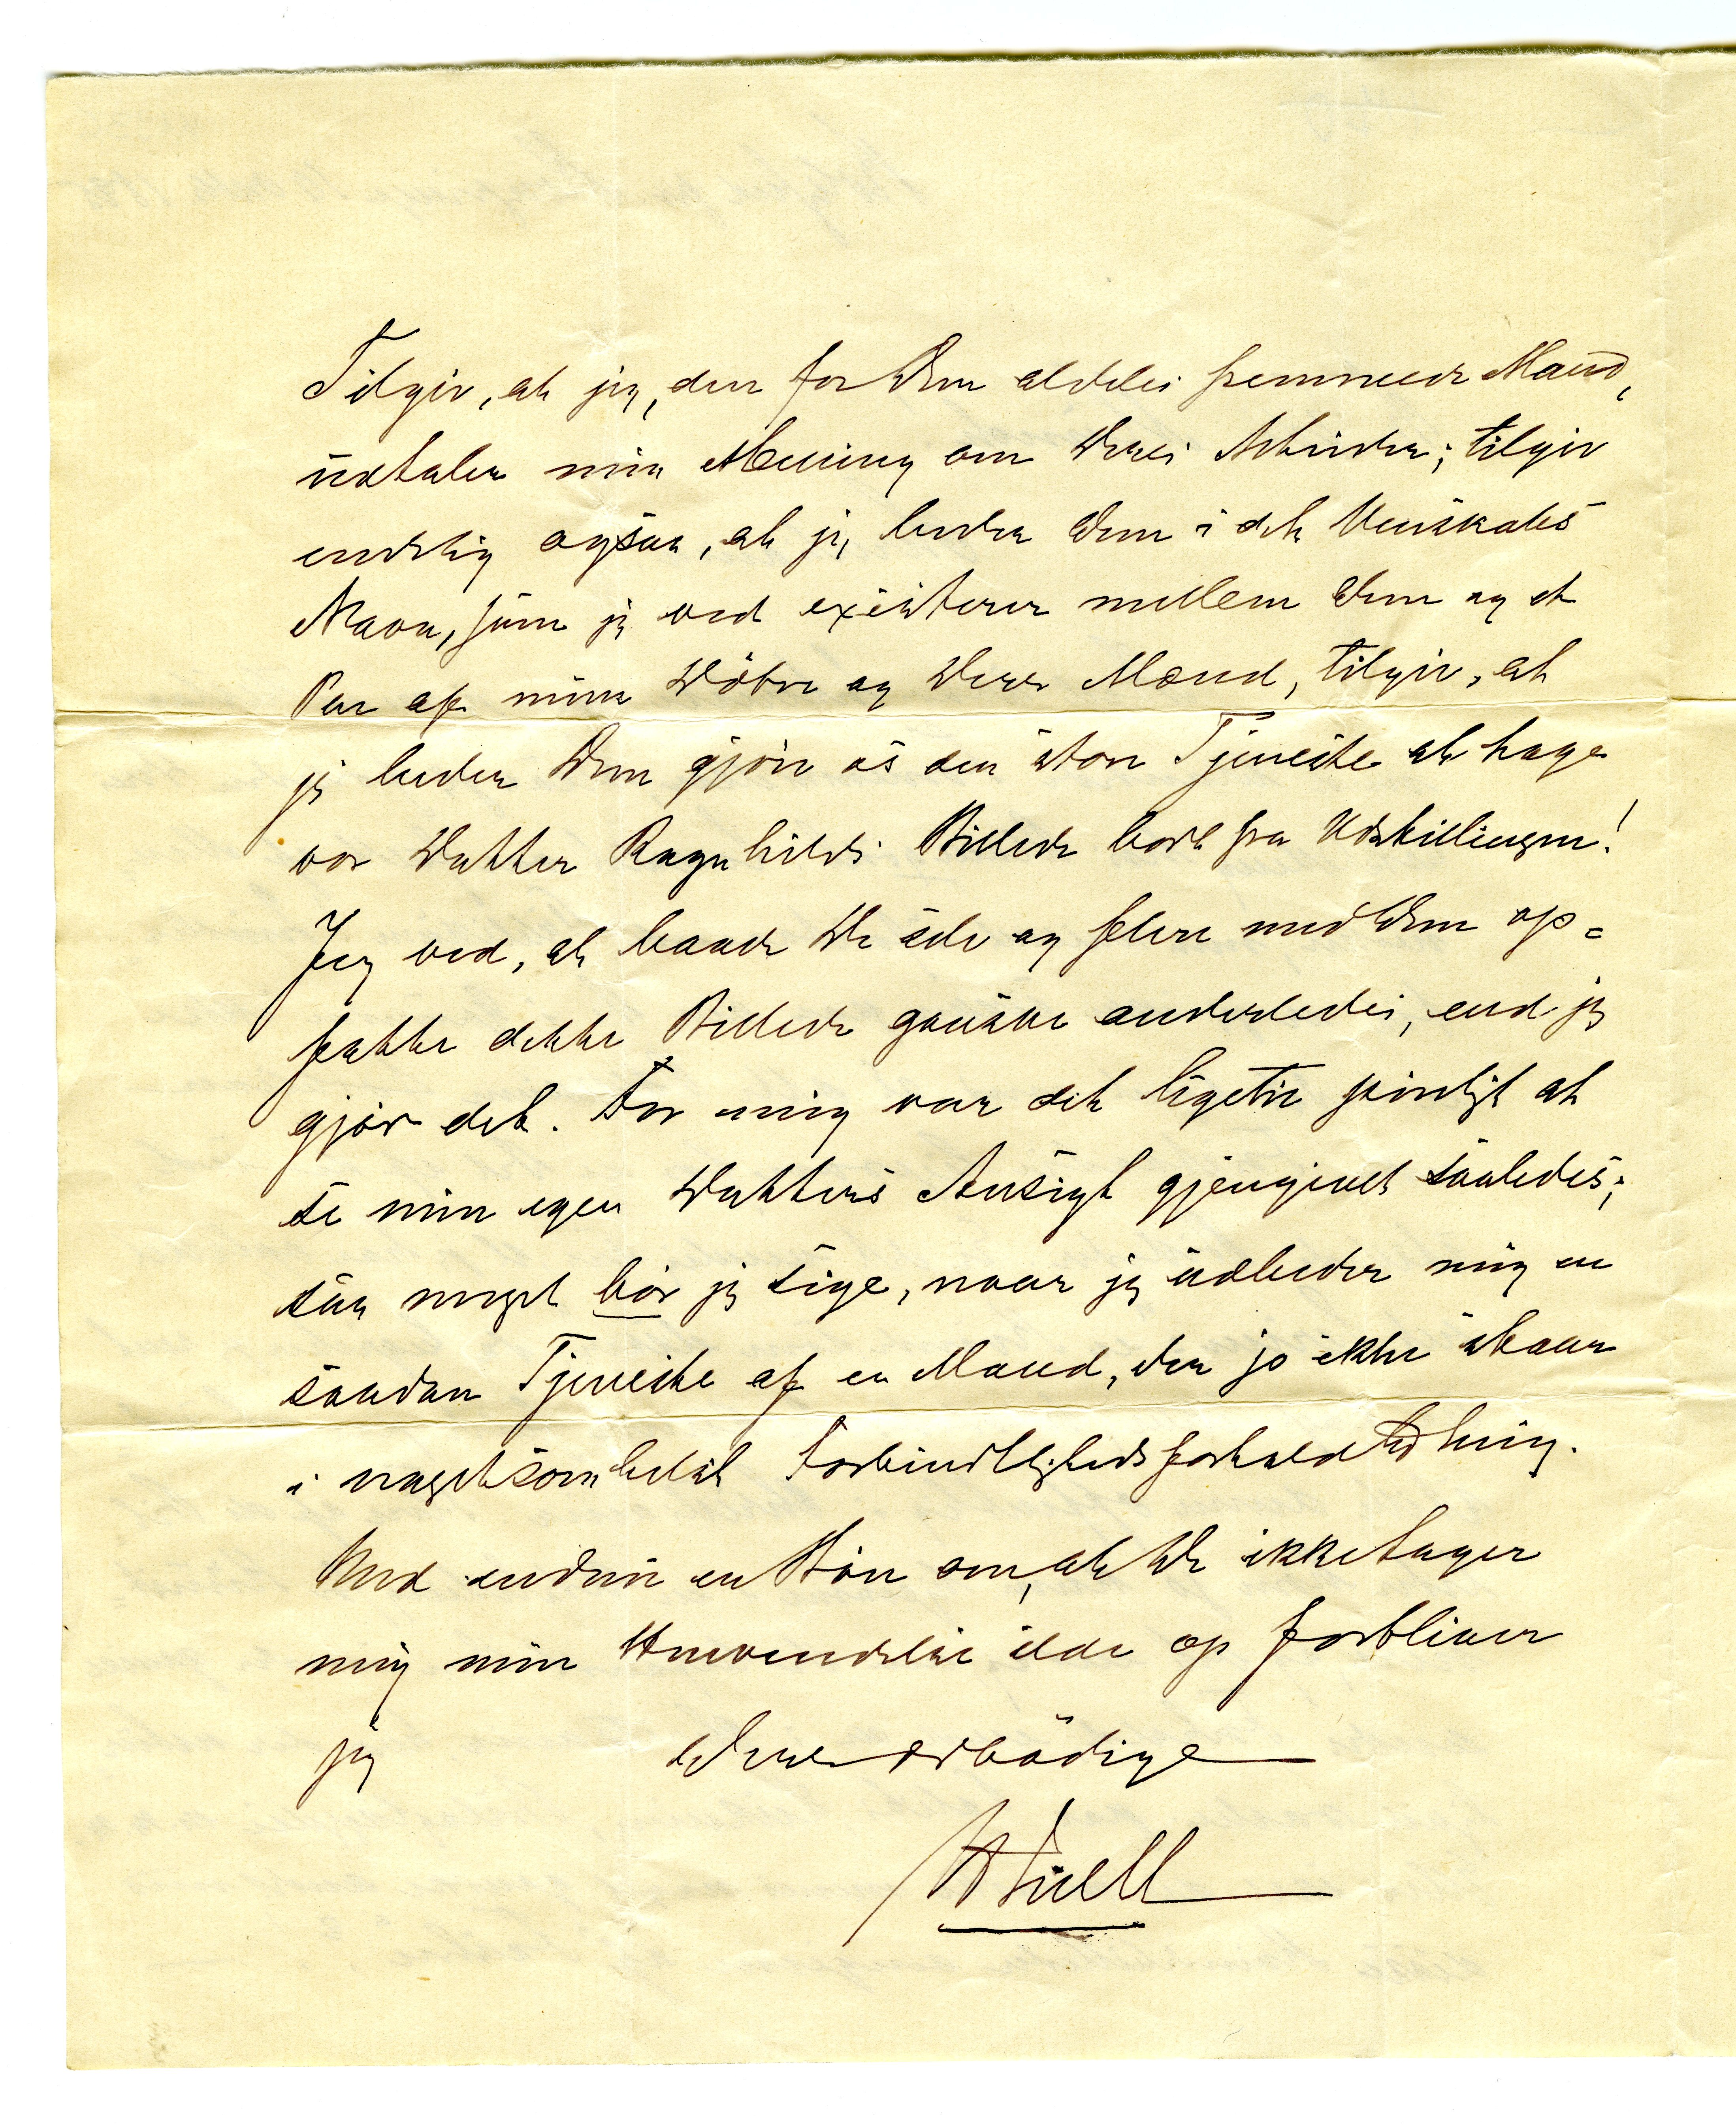 Tilgiv, at jeg, den for Dem aldeles fremmede Mand,
udtaler min Mening om Deres Arbeider; tilgiv
endelig ogsaa, at jeg beder Dem i det Venskabs
Navn, som jeg ved existerer mellem Dem og et
Par af mine Døtre og deres Mænd, tilgiv, at
jeg beder Dem gjøre os den store Tjeneste at tage
vor Datter Ragnhilds Billede bort fra Udstillingen!
Jeg ved, at baade De selv og flere med Dem op=
fatte dette Billede ganske anderledes, end jeg
gjør det. For mig var det ligetil piinligt at
se min egen Datters Ansigt gjengivet saaledes;
saa meget bør jeg sige, naar jeg udbeder mig en
saadan Tjeneste af en Mand, der jo ikke staar
i nogetsomhelst Forbindtlighedsforhold til mig.
Med endnu en Bøn om, at De ikke tager
mig min Henvendelse ilde op forbliver
jeg Deres ærbødige